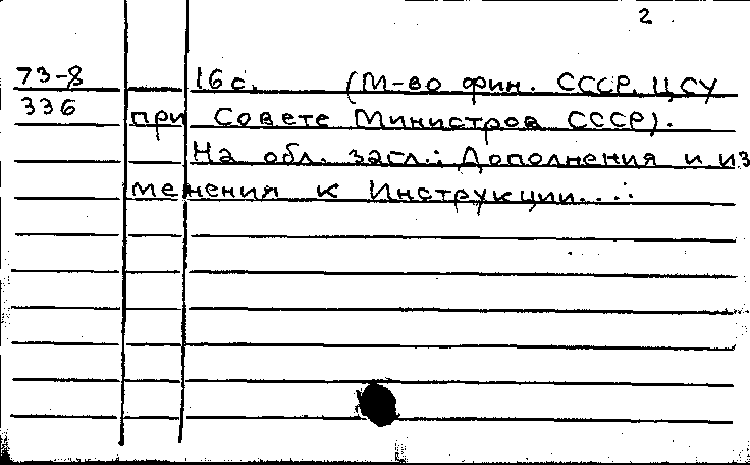 2
73-8 16 с. (М-во фин. СССР. ЦСУ
336 при Совете Министров СССР).
На обл. загл.: Дополнения и из
менения к Инструкции...